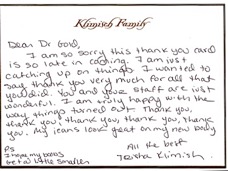 Klimish Family
Dear Dr Gold,
I am so sorry this thank you card
is so late in coming. I am just
catching up on things. I wanted to
say thank you very much for all that
you did. You and your staff are just
wonderful. I am truly happy with the
way things turned out. Thank you,
thank you, thank you, thank you, thank
you. My jeans look great on my new body
All the best
Trisha Klimish.
PS
I hope my boobs
get a little smaller